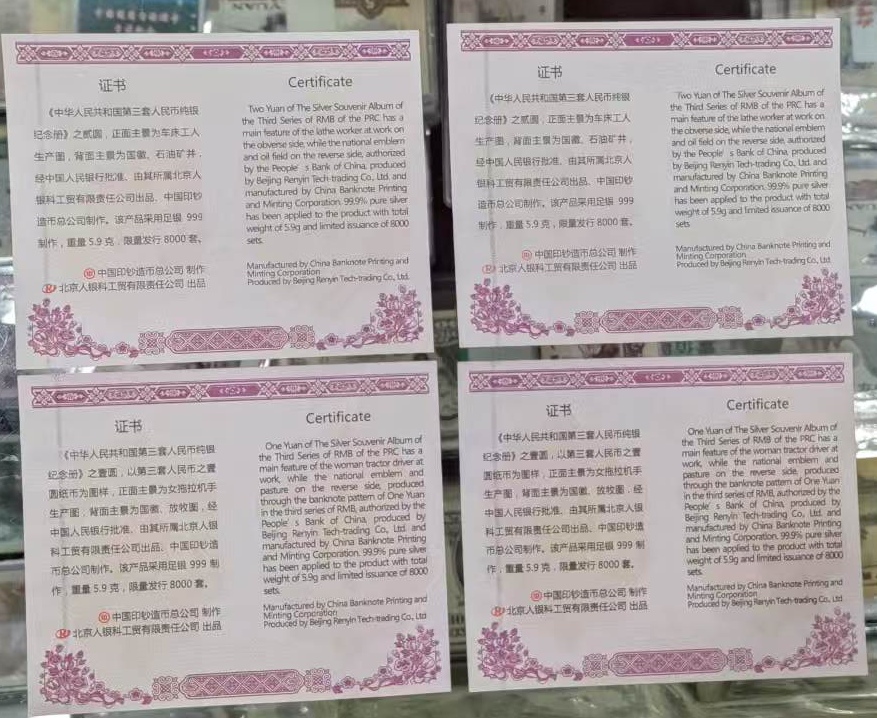 证书
《中华人民共和国第三套人民币纯银
纪念册》之贰圆，正面主景为车床工人
生产图，背面主景为国徽、石油矿井，
经中国人民银行批准、由其所属北京人
银科工贸有限责任公司出品、中国印钞
造币总公司制作。该产品采用足银 999
制作，重量 5.9 克，限量发行 8000 套。
中国印钞造币总公司 制作
北京人银科工贸有限责任公司 出品
Certificate
Two Yuan of The Silver Souvenir Album of
the Third Series of RMB of the PRC has a
main feature of the lathe worker at work on
the obverse side, while the national emblem
and oil field on the reverse side, authorized
by the People´s Bank of China, produced
by Beijing Renyin Tech-trading Co., Ltd. and
manufactured by China Banknote Printing
and Minting Corporation. 99.9% pure silver
has been applied to the product with total
weight of 5.9g and limited issuance of 8000
sets.
Manufactured by China Banknote Printing and
Minting Corporation
Produced by Beijing Renyin Tech-trading Co., Ltd.
证书
《中华人民共和国第三套人民币纯银
纪念册》之贰圆，正面主景为车床工人
生产图，背面主景为国徽、石油矿井，
经中国人民银行批准、由其所属北京人
银科工贸有限责任公司出品、中国印钞
造币总公司制作。该产品采用足银 999
制作，重量 5.9 克，限量发行 8000 套。
中国印钞造币总公司 制作
北京人银科工贸有限责任公司 出品
Certificate
Two Yuan of The Silver Souvenir Album of
the Third Series of RMB of the PRC has a
main feature of the lathe worker at work on
the obverse side, while the national emblem
and oil field on the reverse side, authorized
by the People´s Bank of China, produced
by Beijing Renyin Tech-trading Co., Ltd. and
manufactured by China Banknote Printing
and Minting Corporation. 99.9% pure silver
has been applied to the product with total
weight of 5.9g and limited issuance of 8000
sets.
Manufactured by China Banknote Printing and
Minting Corporation
Produced by Beijing Renyin Tech-trading Co., Ltd.
证书
《中华人民共和国第三套人民币纯银
纪念册》之壹圆，以第三套人民币之壹
圆纸币为图样，正面主景为女拖拉机手
生产图，背面主景为国徽、放牧图，经
中国人民银行批准、由其所属北京人银
科工贸有限责任公司出品、中国印钞造
币总公司制作。该产品采用足银 999 制
作，重量 5.9 克，限量发行 8000 套。
中国印钞造币总公司 制作
北京人银科工贸有限责任公司 出品
Certificate
One Yuan of The Silver Souvenir Album of
the Third Series of RMB of the PRC has a
main feature of the woman tractor driver at
work, while the national emblem and
pasture on the reverse side, produced
through the banknote pattern of One Yuan
in the third series of RMB, authorized by the
People´s Bank of China, produced by
Beijing Renyin Tech-trading Co., Ltd. and
manufactured by China Banknote Printing
and Minting Corporation. 99.9% pure silver
has been applied to the product with total
weight of 5.9g and limited issuance of 8000
sets.
Manufactured by China Banknote Printing and
Minting Corporation
Produced by Beijing Renyin Tech-trading Co., Ltd.
证书
《中华人民共和国第三套人民币纯银
纪念册》之壹圆，以第三套人民币之壹
圆纸币为图样，正面主景为女拖拉机手
生产图，背面主景为国徽、放牧图，经
中国人民银行批准、由其所属北京人银
科工贸有限责任公司出品、中国印钞造
币总公司制作。该产品采用足银 999 制
作，重量 5.9 克，限量发行 8000 套。
中国印钞造币总公司 制作
北京人银科工贸有限责任公司 出品
Certificate
One Yuan of The Silver Souvenir Album of
the Third Series of RMB of the PRC has a
main feature of the woman tractor driver at
work, while the national emblem and
pasture on the reverse side, produced
through the banknote pattern of One Yuan
in the third series of RMB, authorized by the
People´s Bank of China, produced by
Beijing Renyin Tech-trading Co., Ltd. and
manufactured by China Banknote Printing
and Minting Corporation. 99.9% pure silver
has been applied to the product with total
weight of 5.9g and limited issuance of 8000
sets.
Manufactured by China Banknote Printing and
Minting Corporation
Produced by Beijing Renyin Tech-trading Co., Ltd.